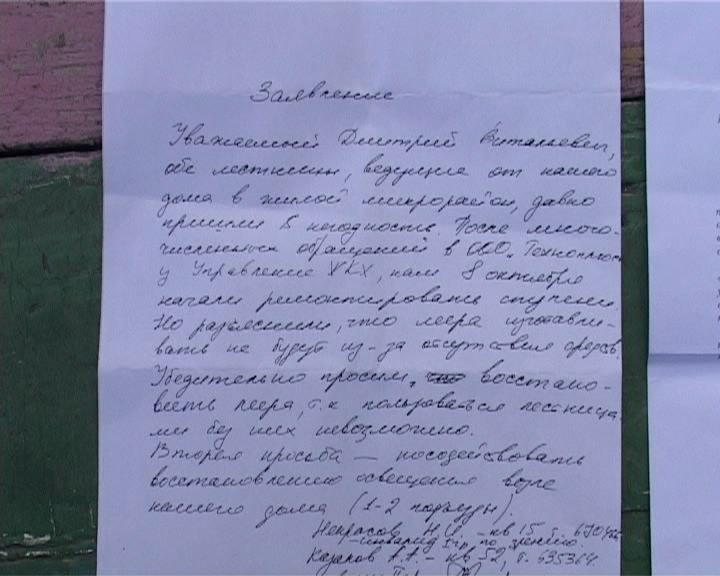 Заявление
Уважаемый Дмитрий Витальевич,
обе лестницы, ведущие от нашего
дома в жилой микрорайон, давно
пришли в негодность. После много-
численных обращений в ООО „Техноплюс
и Управление ЖКХ, нам 8 октября
начали ремонтировать ступени.
Но разъяснили, что леера изготавли-
вать не будут из-за отсутствия средств.
Убедительно просим, восстано-
вить леера, т.к пользоваться лестница-
ми без них невозможно.
Вторая просьба – посодействовать
восстановлению освещения возле
нашего дома (1-2 подъезды).
Некрасова Н.И. – кв 15 т.
инвалид II гр. по зрению.
Казаков А.А. – кв 52, т. 635364.